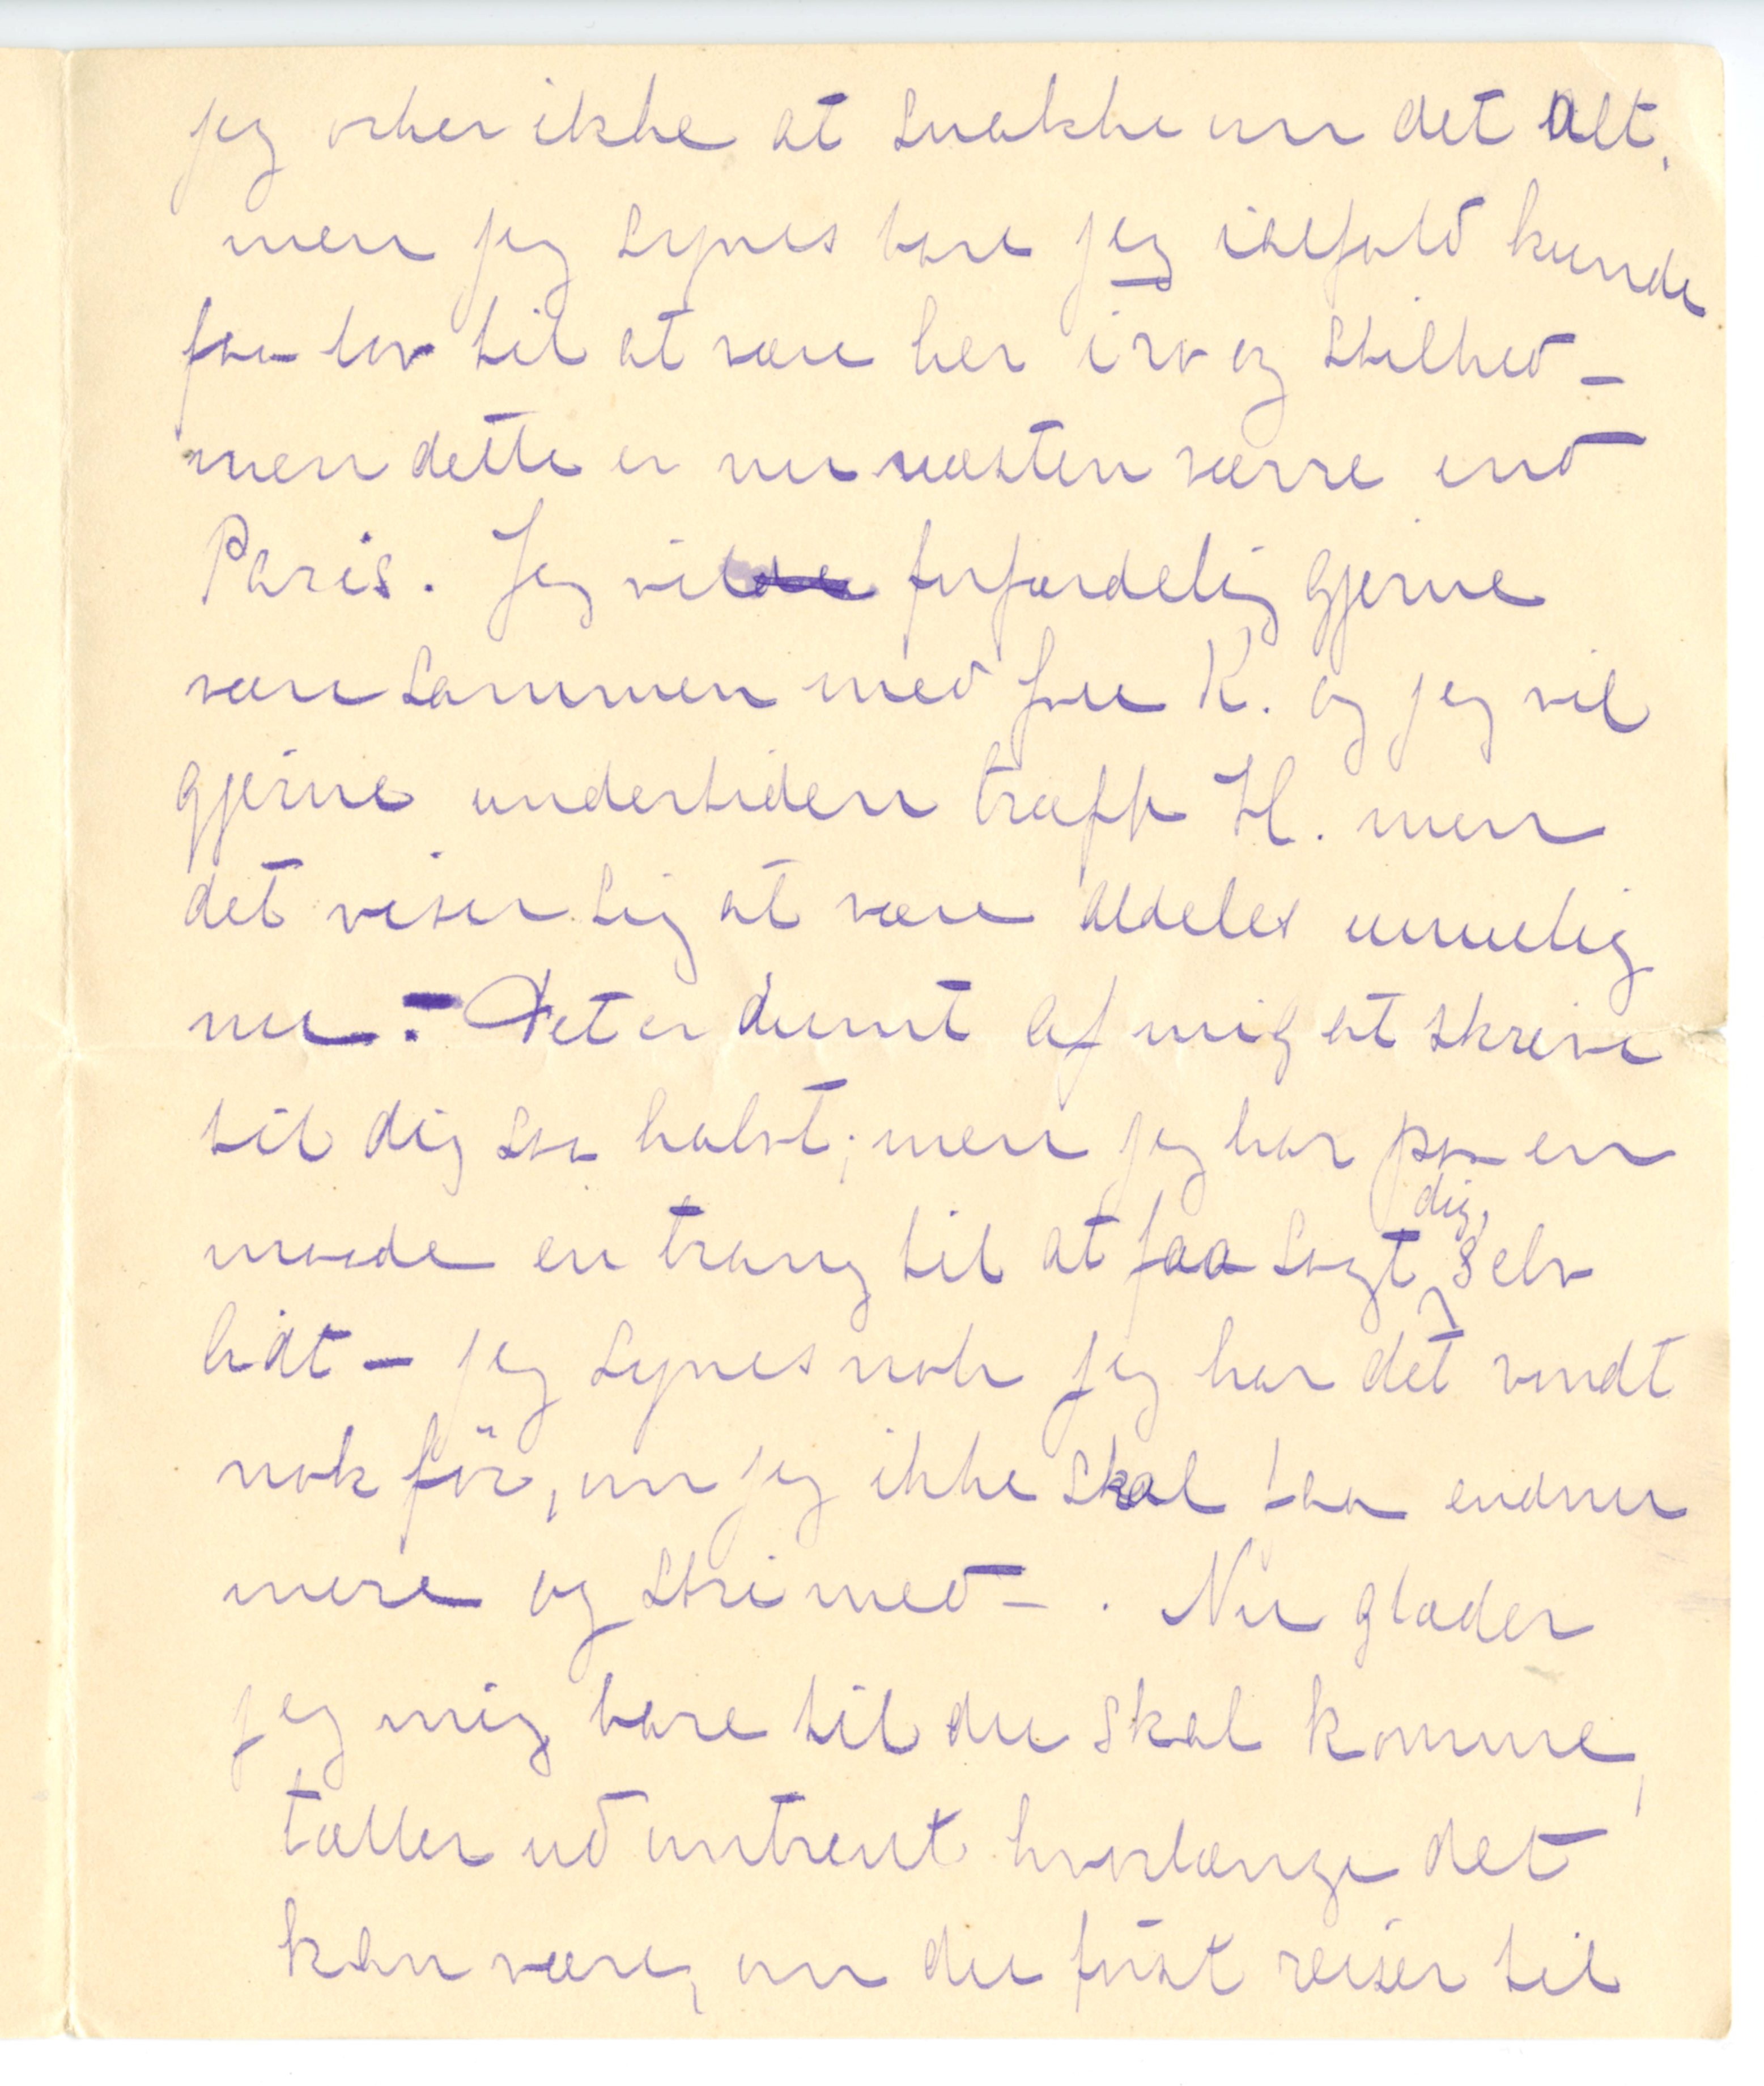 jeg orker ikke at snakke om det alt,
men jeg synes bare jeg ialfald kunde
faa lov til at være her i ro og stilhed –
men dette er nu næsten værre end
Paris. Jeg vil forfærdelig gjerne
være sammen med fru K. og jeg vil
gjerne undertiden træffe H. men
det viser sig at være aldeles umulig
nu. – Det er dumt af mig at skrive
til dig saa halvt; men jeg har paa en
maade en trang til at faa sagt dig, selv
lidt – jeg synes nok jeg har det vondt
nok för, om jeg ikke skal faa endnu
mere og stri med – . Nu glæder
jeg mig bare til du skal komme,
tæller ud omtrent hvorlænge det
kan være, om du först reiser til